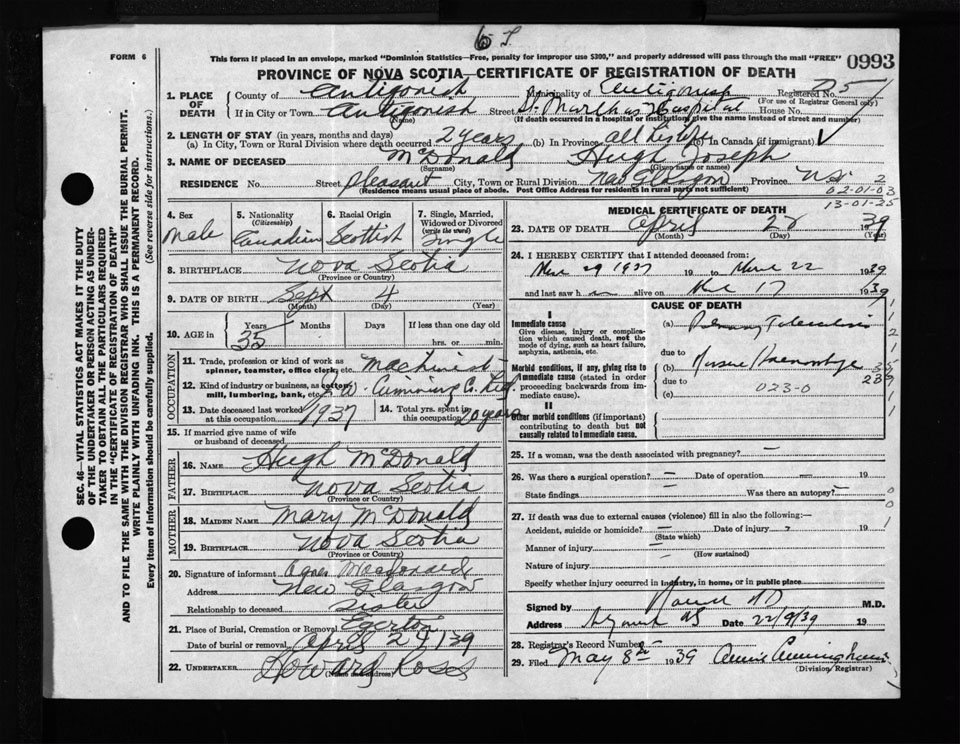 6 T.
FORM 6
This form if placed in an envelope, marked "Dominion Statistics—Free, penalty for improper use $300," and properly addressed will pass through the mail "FREE"
0993
PROVINCE OF NOVA SCOTIA—CERTIFICATE OF REGISTRATION OF DEATH
1. PLACE OF DEATH
County of Antigonish Municipality of Antigonish Registered No. 51
(For use of Registrar General only)
If in City or Town Antigonish Street St. Martha's Hospital House No.
(If death occurred in a hospital or institution, give name instead of street and number)
2. LENGTH OF STAY (in years, months and days)
(a) In City, Town or Rural Division where death occurred 2 years (b) In Province all his life (c) In Canada (if immigrant)
3. NAME OF DECEASED McDonald Hugh Joseph
(Surname) (Given name or names)
RESIDENCE No. Street Pleasant City, Town or Rural Division New Glasgow Province N.S. 2
(Residence means usual place of abode. Post Office Address for residents in rural parts not sufficient)
02-01-03
13-01-25
4. Sex
Male
5. Nationality (Citizenship)
Canadian
6. Racial Origin
Scottish
7. Single, Married, Widowed or Divorced (write the word)
Single
8. BIRTHPLACE Nova Scotia
(Province or Country)
9. DATE OF BIRTH Sept 4
(Month) (Day) (Year)
10. AGE in Years Months Days If less than one day old
35 hrs. or min.
OCCUPATION
11. Trade, profession or kind of work as spinner, teamster, office clerk, etc. Machinist
12. Kind of industry or business, as cotton mill, lumbering, bank, etc. J.W. Cumming Co. Ltd.
13. Date deceased last worked at this occupation 1937
14. Total yrs. spent in this occupation 20 years
15. If married give name of wife or husband of deceased
FATHER
16. NAME Hugh McDonald
17. BIRTHPLACE Nova Scotia
(Province or Country)
MOTHER
18. MAIDEN NAME Mary McDonald
19. BIRTHPLACE Nova Scotia
(Province or Country)
20. Signature of informant Agnes Macdonald
Address New Glasgow
Relationship to deceased sister
21. Place of Burial, Cremation or Removal Egerton
Date of burial or removal April 25/39
22. UNDERTAKER Howard Ross
(Name and address)
MEDICAL CERTIFICATE OF DEATH
23. DATE OF DEATH April 22 1939
(Month) (Day) (Year)
24. I HEREBY CERTIFY that I attended deceased from
29 1937 19 to 22 1939
and last saw h alive on 17 1939
CAUSE OF DEATH
I
Immediate cause
Give disease, injury or complication which caused death, not the mode of dying, such as heart failure, asphyxia, asthenia, etc.
(a) Pulmonary Tuberculosis
due to
Morbid conditions, if any, giving rise to immediate cause (stated in order proceeding backwards from immediate cause).
(b) Massive Haemorrhage
due to
(c) 023-0
II
Other morbid conditions (if important) contributing to death but not causally related to immediate cause.
25. If a woman, was the death associated with pregnancy? —
26. Was there a surgical operation? — Date of operation — 19
State findings — Was there an autopsy? —
27. If death was due to external causes (violence) fill in also the following:—
Accident, suicide or homicide? — Date of injury - 19
(State which)
Manner of injury —
(How sustained)
Nature of injury
Specify whether injury occurred in industry, in home, or in public place
Signed by M.D. M.D.
Address Date 22/4/39 19
28. Registrar's Record Number
29. Filed May 8th 1939 Annie Cunningham
(Division Registrar)
SEC. 46—VITAL STATISTICS ACT MAKES IT THE DUTY
OF THE UNDERTAKER OR PERSON ACTING AS UNDER-
TAKER TO OBTAIN ALL THE PARTICULARS REQUIRED
IN THE "CERTIFICATE OF REGISTRATION OF DEATH"
AND TO FILE THE SAME WITH THE DIVISION REGISTRAR WHO SHALL ISSUE THE BURIAL PERMIT.
WRITE PLAINLY WITH UNFADING INK. THIS IS A PERMANENT RECORD.
Every item of information should be carefully supplied. (See reverse side for instructions.)